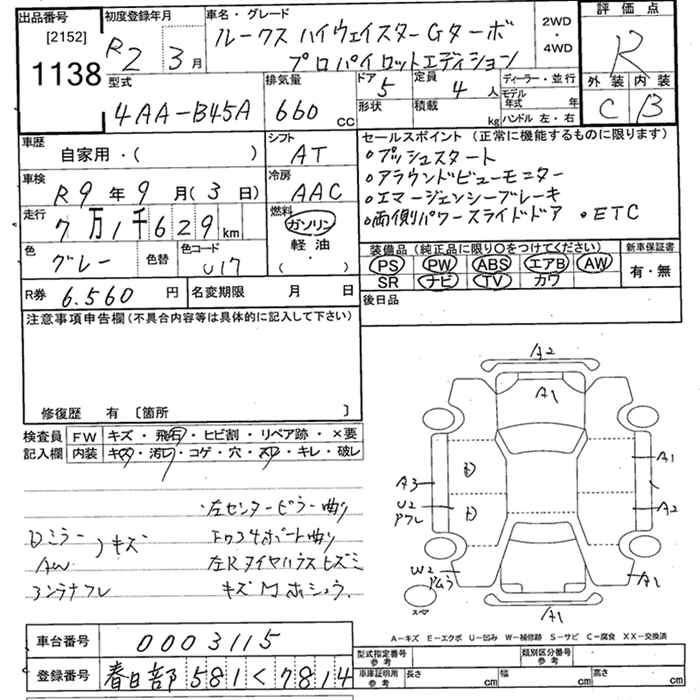 出品番号 [2152] 1138
初度登録年月 R2 3月
車名・グレード ルークス ハイウェイスターGターボ
プロパイロットエディション
2WD ・ 4WD
評価点 R
外装 内装
C B
型式 4AA-B45A
排気量 660 CC
ドア 5
形状
定員 4 人
積載 kg
ディーラー・並行
モデル年式 年
ハンドル 左・右
車歴 自家用・( )
シフト AT
車検 R9年9月(3日)
冷房 AAC
走行 7万1千629 km
燃料 ガソリン
軽油
( ・ )
色 グレー
色替
色コード U17
R券 6.560 円
名変期限 月 日
セールスポイント (正常に機能するものに限ります)
・プッシュスタート
・アラウンドビューモニター
・エマージェンシーブレーキ
・両側パワースライドドア ・ETC
装備品 (純正品に限り○をつけてください) 新車保証書
PS PW ABS エアB AW 有・無
SR ナビ TV カワ
後日品
注意事項申告欄 (不具合内容等は具体的に記入して下さい)
修復歴 有 〔箇所 〕
検査員 FW キズ・飛石・ヒビ割・リペア跡・×要
記入欄 内装 キズ・汚レ・コゲ・穴・スレ・キレ・破レ
・左センターピラー曲り
ミラー キズ
AW
左Rタイヤハウスヒズミ
A2
A1
A1
A3
U2
A2
W2
A1
A1
スペ
A-キズ E-エクボ U-凹み W-補修跡 S-サビ C-腐食 XX-交換済
車台番号 0003115
登録番号 春日部 581 く 7814
型式指定番号 参考
類別区分番号 参考
車庫証明用 参考 長さ cm 幅 cm 高さ cm